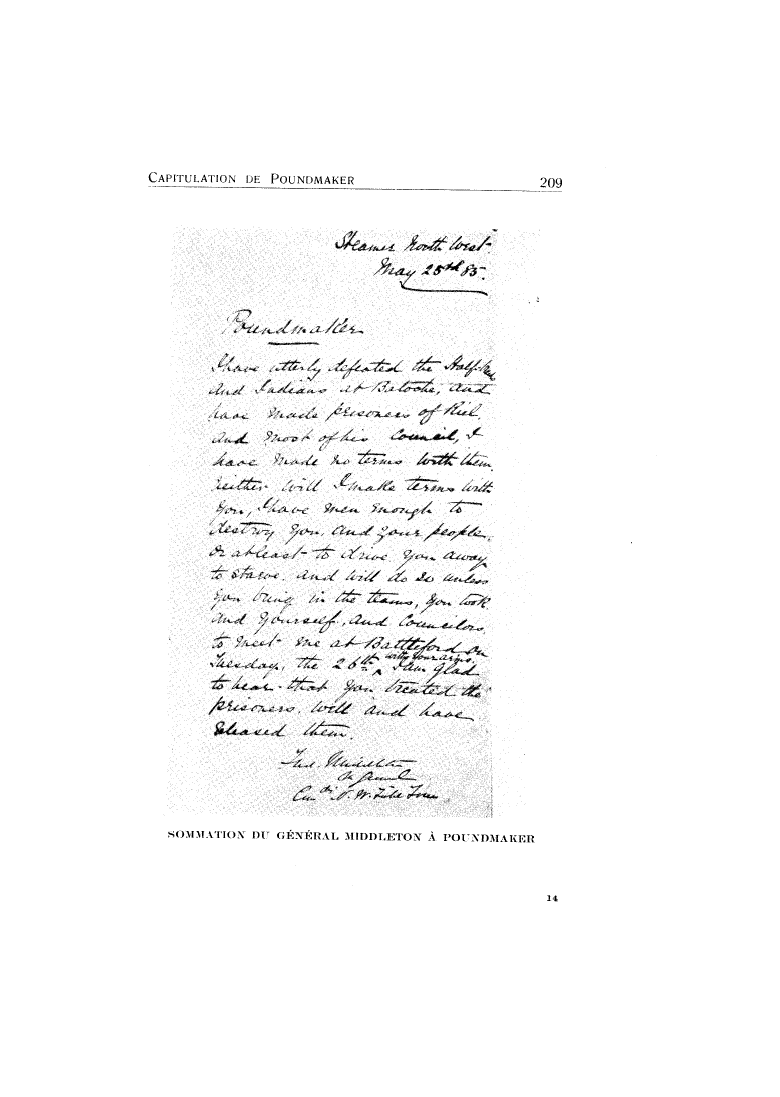 CAPITULATION DE POUNDMAKER 209
Steamer North West
May 23rd 85.
Poundmaker
I have utterly defeated the Half-breeds
and Indians at Batoche, and
have made prisoners of Riel,
and most of his Council, I
have made no terms with them,
neither will I make terms with
you, I have men enough to
destroy you, and your people,
or at least to drive you away
to starve, and will do so unless
you bring in the teams, you took
and yourself, and Councelors,
to meet me at Battleford on
with your arms,
Tuesday, the 26th ‸ I am glad
to hear that you treated the
prisoners, well and have
released them.
Fred. Middleton
M General
Comdg N. W. Field Force
SOMMATION DU GÉNÉRAL MIDDLETON À POUNDMAKER
14